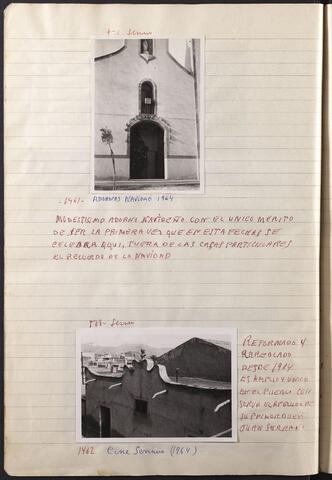 -1461- ADORNOS NAVIDAD 1964
MODESTISIMO ADORNO NAVIDEÑO CON EL UNICO MERITO
DE SER LA PRIMERA VEZ QUE EN ESTA FECHAS SE
CELEBRA AQUI, FUERA DE LAS CASAS PARTICULARES
EL RECUERDO DE LA NAVIDAD
REFORMADO Y
ARREGLADO
DESDE 1964.
ES AMPLIO Y UNICO
EN EL PUEBLO CON
SU PRIMOR DUEÑO
JUAN SERRAN
1462 Cine Serrano (1964)